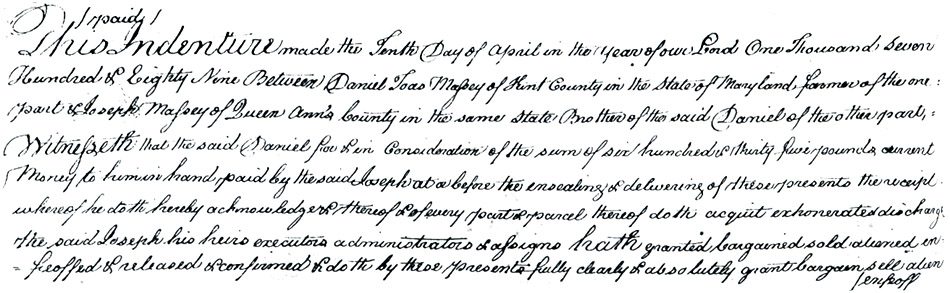 / paid /
This Indenture made the Tenth Day of April in the Year of our Lord One Thousand Seven
Hundred & Eighty Nine Between Daniel Toas Massey of Kent County in the State of Maryland farmer of the one
part & Joseph Massey of Queen Ann's County in the same State Brother of the said Daniel of the other part,
Witnesseth that the said Daniel for & in Consideration of the sum of six hundred & thirty five pounds current
Money to him in hand paid by the said Joseph at & before the ensealing & delivering of these presents the receipt
whereof he doth hereby acknowledge & thereof & of every part & parcel thereof doth acquit exhonerate & discharge
the said Joseph his heirs executors administrators & assigns hath granted bargained sold aliened en-
-feoffed & released & confirmed & doth by these presents fully clearly & absolutely grant bargain sell alien
enfeoff